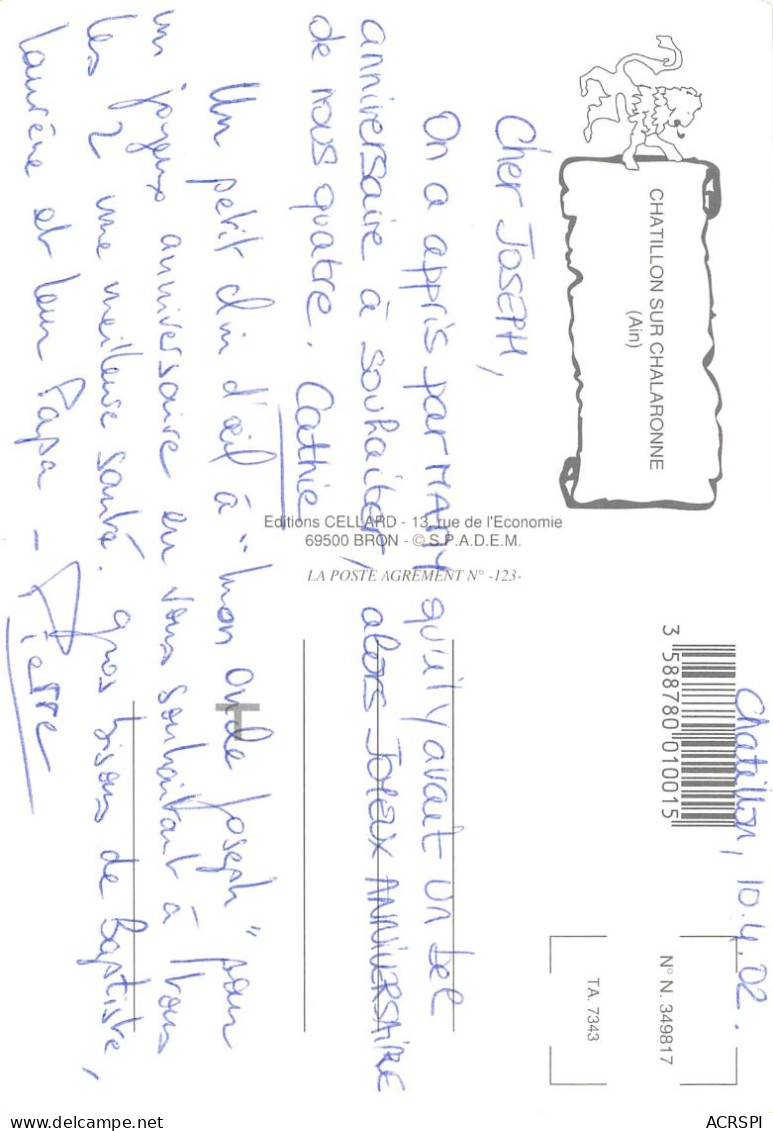 CHATILLON SUR CHALARONNE
(Ain)
Chatillon, 10.4.02.
Cher JOSEPH,
On a appris par MAMY qu'il y avait un bel
anniversaire à souhaiter, alors JOYEUX ANNIVERSAIRE
de nous quatre. Cathie
Un petit clin d'œil à "mon oncle Joseph" pour
un joyeux anniversaire en vous souhaitant à tous
les 2 une meilleure santé. gros bisous de Baptiste,
Laurène et leur Papa - Pierre
Editions CELLARD - 13, rue de l'Economie
69500 BRON - © S.P.A.D.E.M.
LA POSTE AGREMENT N° -123-
3 588780 010015
N° N. 349817
TA. 7343
ACRSPI